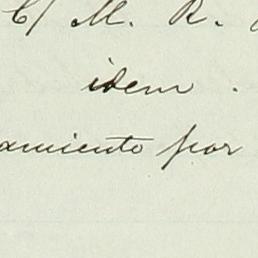 C/ M. R.
idem.
amiento por